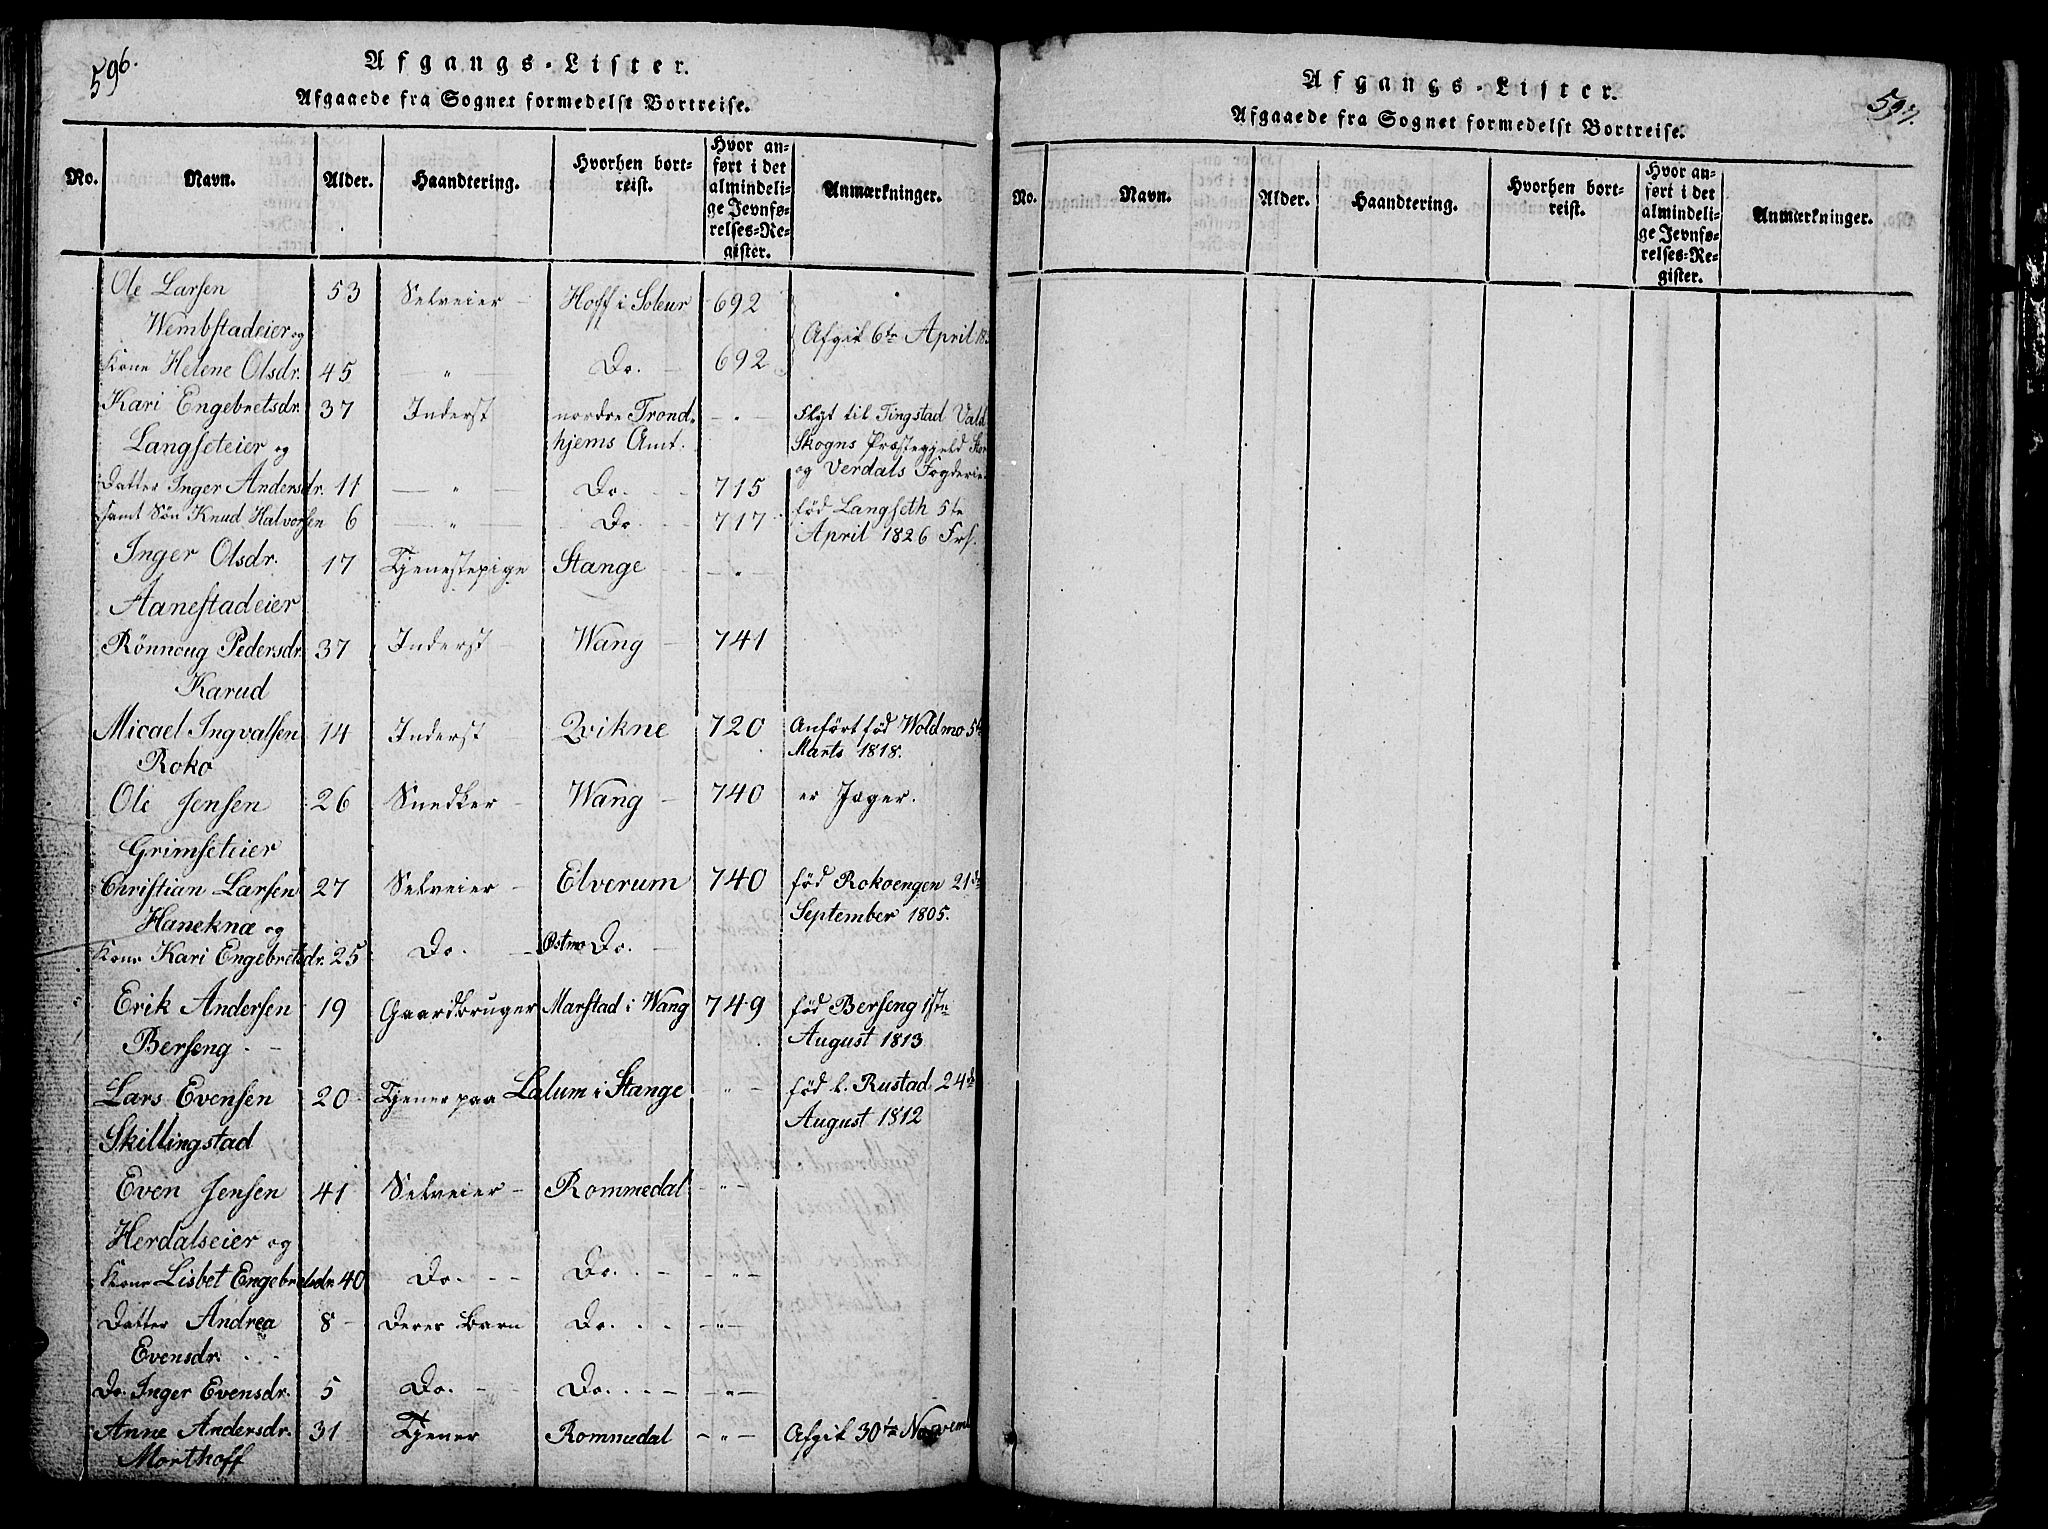 596.
Afgangs-Lister.
Afgaaede fra Sognet formedelst Bortreise.
No. Navn. Alder. Haandtering. Hvorhen bortreist. Hvor anført i det almindelige Jevnførelses-Register. Anmærkninger.
Ole Larsen 53 Selveier Hoff i Soleur 692
Wembstadeier og Afgik 6te April
Kone Helene Olsdr. 45 " Do. 692
Kari Engebretsdr. 37 Inderst nordre Trond- " Flyt til Tingstad Vald
Langseteier og hjems Amt. Skogns Præstegjeld
og Verdals Fogderie
Datter Inger Andersdr. 11 " Do. 715
samt Søn Knud Halvorsen 6 " Do. 717 fød Langseth 5te
April 1826 Frs.
Inger Olsdr. 17 Tjenestepige Stange "
Aanestadeier
Rönnoug Pedersdr. 37 Inderst Wang 741
Karud
Micael Ingvalsen 14 Inderst Qvikne 720 Anfört fød Woldmo 5te
Roko Marts 1818.
Ole Jensen 26 Snedker Wang 740 er Jæger.
Grimseteier
Christian Larsen 27 Selveier Elverum 740 fød Rokoengen 21de
Haneknæ og September 1805.
Kone Kari Engebretsdr. 25 Do. Østmo Do.
Erik Andersen 19 Gaardbruger Marstad i Wang 749 fød Berseng 1ste
Berseng August 1813
Lars Evensen 20 Tjener paa Lalum i Stange " fød l. Rustad 24de
Skillingstad August 1812
Even Jensen 41 Selveier Rommedal "
Herdalseier og
Kone Lisbet Engebretsdr. 40 Do. Do. "
Datter Andrea 8 Deres Barn Do. "
Evensdr.
Do. Inger Evensdr. 5 Do. Do. "
Anne Andersdr. 31 Tjener Rommedal " Afgik 30te Novem
Morthoff
597.
Afgangs-Lister.
Afgaaede fra Sognet formedelst Bortreise.
No. Navn. Alder. Haandtering. Hvorhen bortreist. Hvor anført i det almindelige Jevnførelses-Register. Anmærkninger.